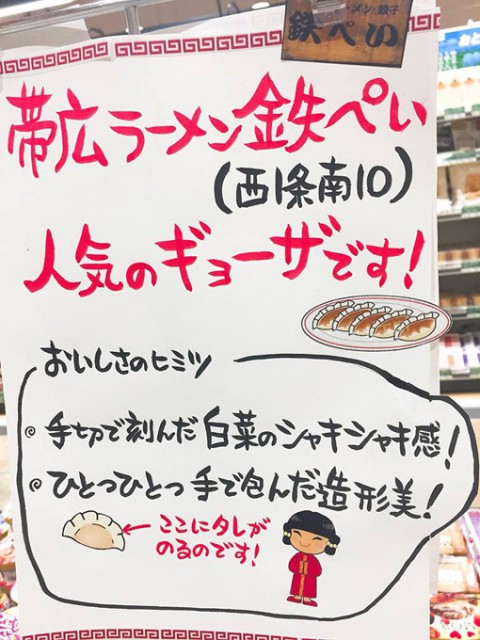 ラーメンと餃子
鉄ぺい
帯広ラーメン鉄ぺい
(西1条南10)
人気のギョーザです!
おいしさのヒミツ
手切で刻んだ白菜のシャキシャキ感!
ひとつひとつ手で包んだ造形美!
←ここにタレが
のるのです!